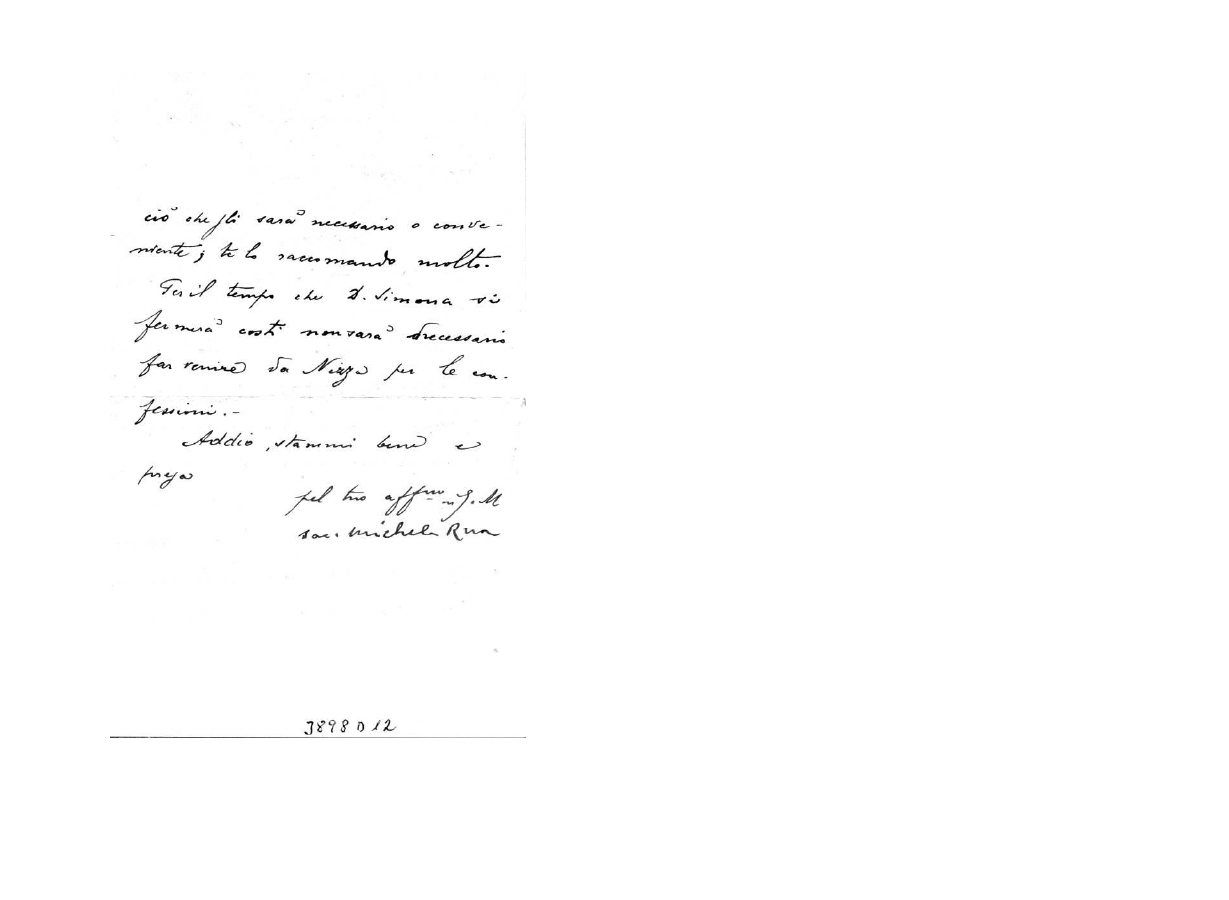 ciò che gli sarà necessario o conve-
niente; te lo raccomando molto.
Per il tempo che D. Simona si
fermerà costì non sarà necessario
far venire da Nizza per le con-
fessioni.-
Addio, stammi bene e
prega
pel tuo affmo in G. M
sac. Michele Rua
3898 D 12